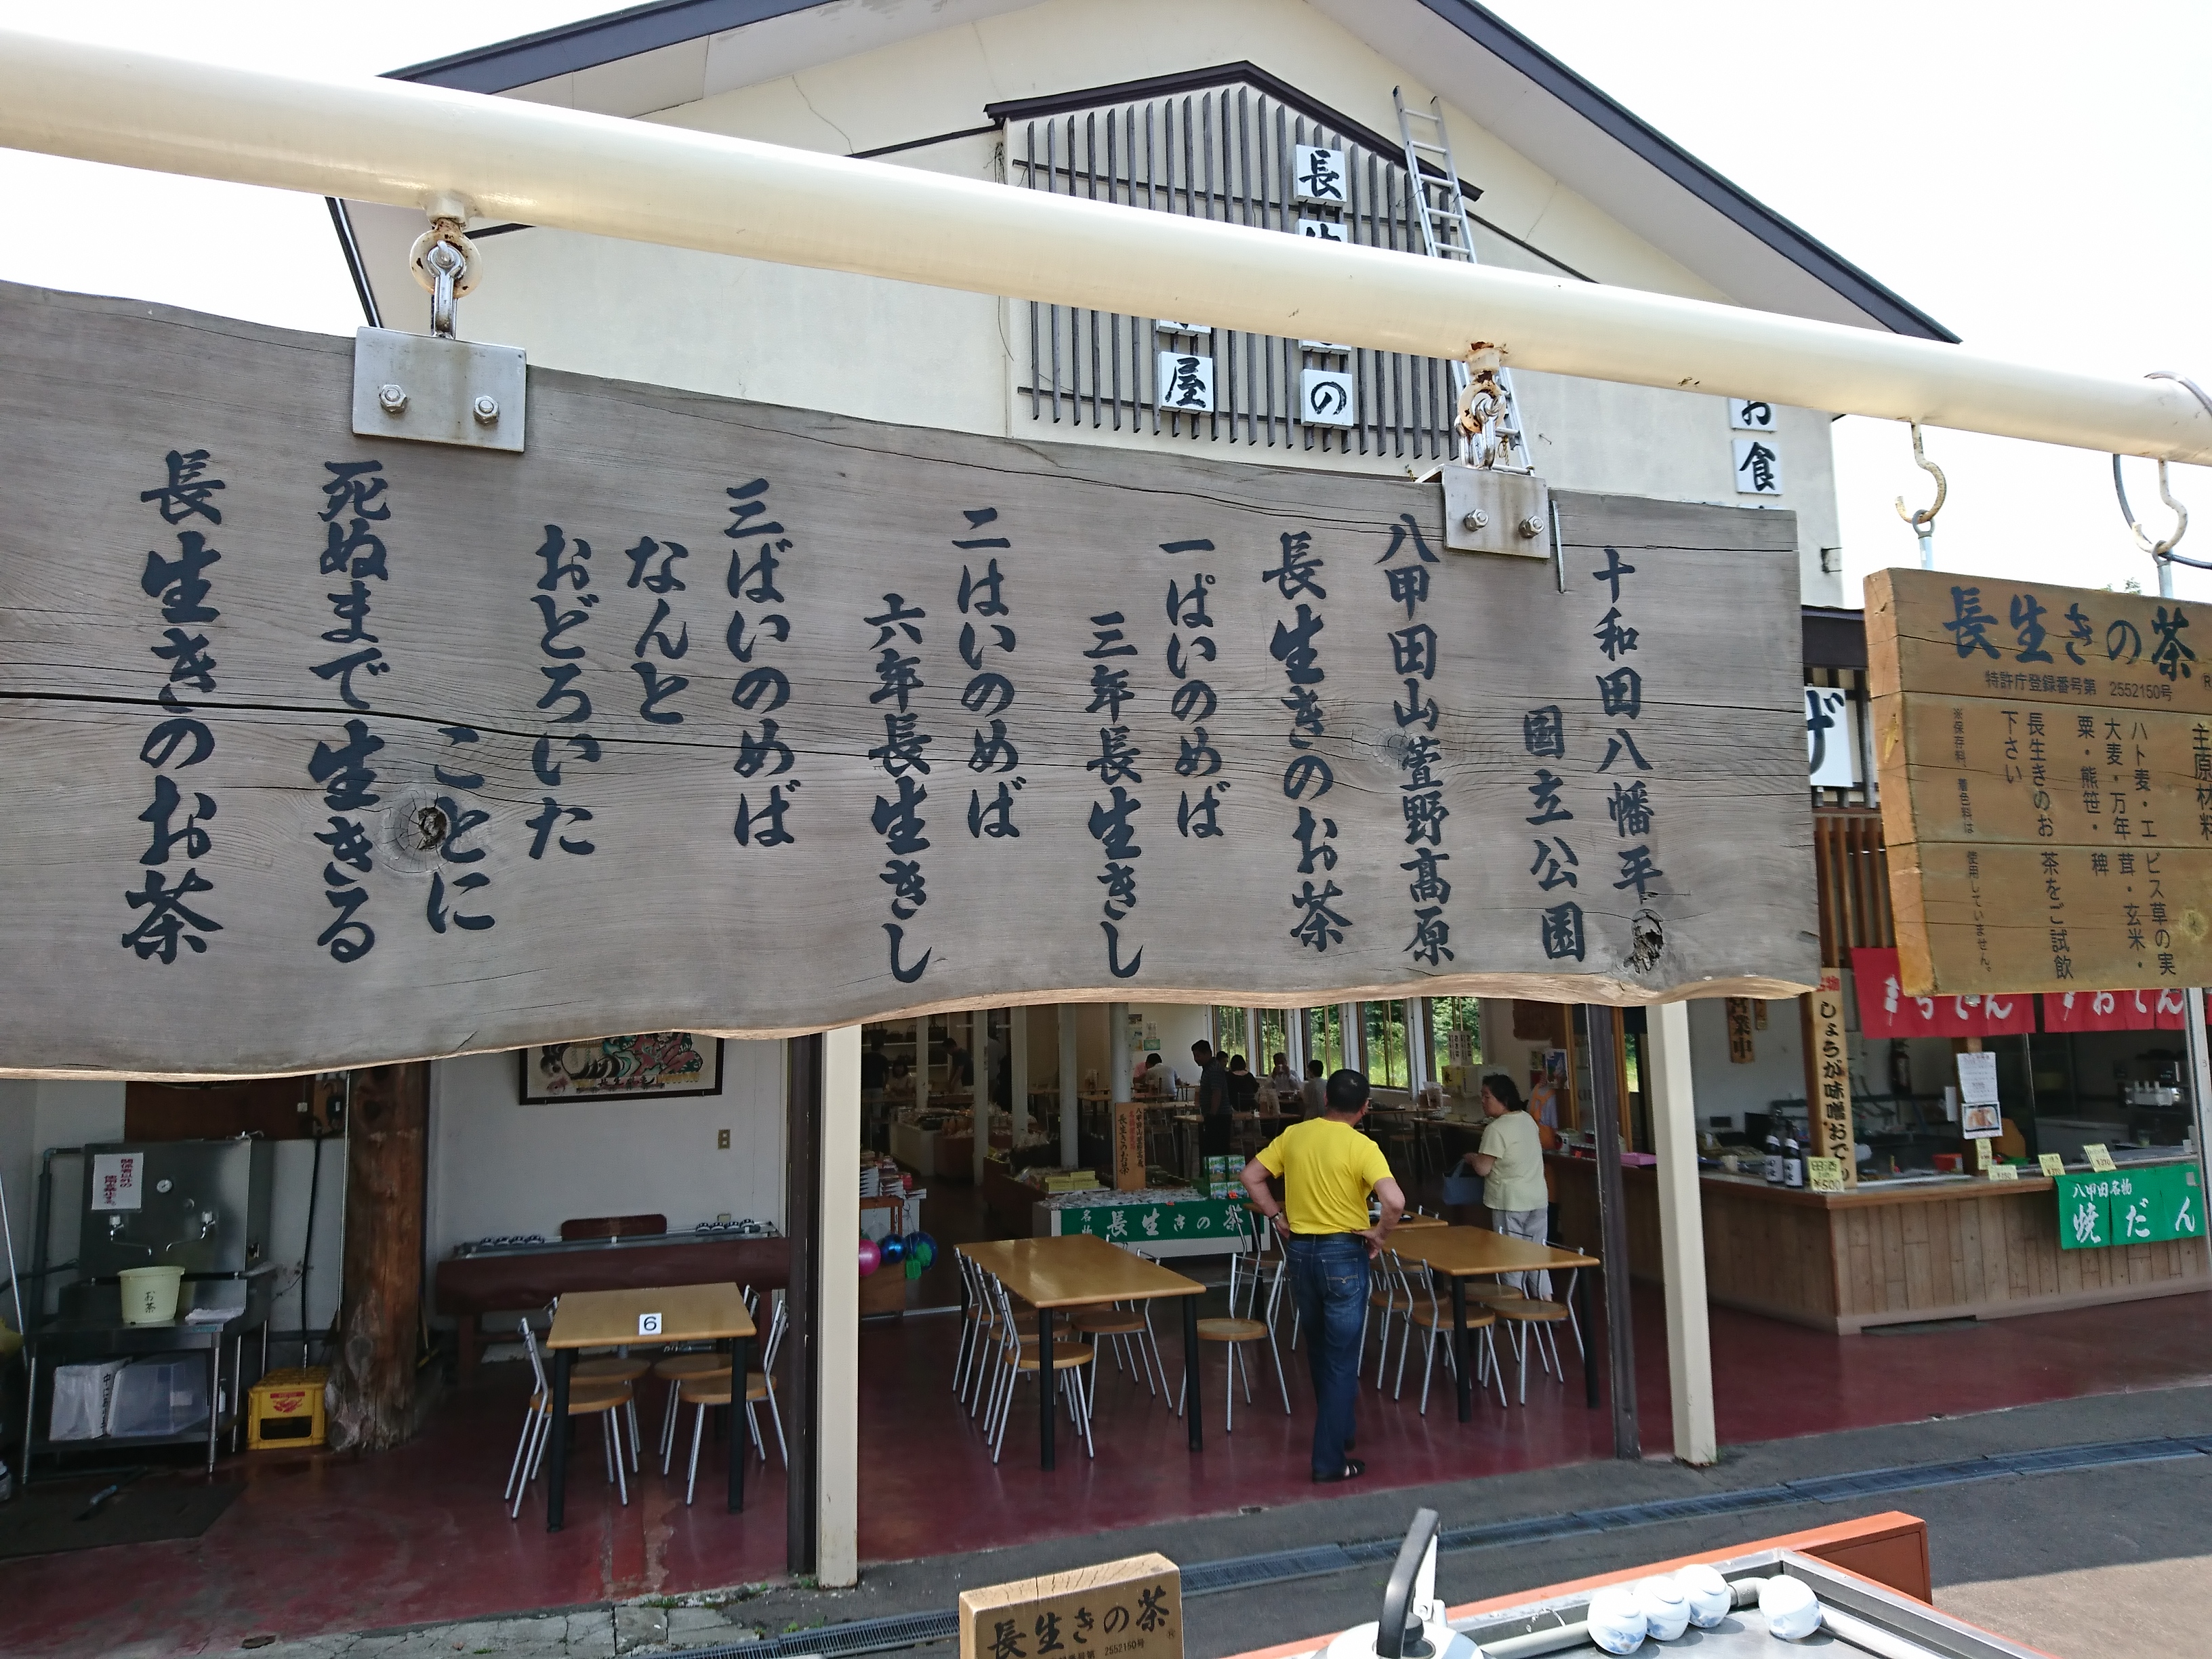 十和田八幡平
国立公園
八甲田山萱野高原
長生きのお茶
一ぱいのめば
三年長生きし
二はいのめば
六年長生きし
三ばいのめば
なんと
おどろいた
ことに
死ぬまで生きる
長生きのお茶
長
の
屋
お食
長生きの茶
特許庁登録番号第 2552150号
主原材料
ハト麦・エビス草の実
大麦・万年茸・玄米・
粟・熊笹・稗
長生きのお茶をご試飲
下さい
※保存料、着色料は使用していません。
しょうが味噌おでん
営業中
おでん
名物 長生きの茶
八甲田名物
焼だん
お茶
6
長生きの茶
2552150号